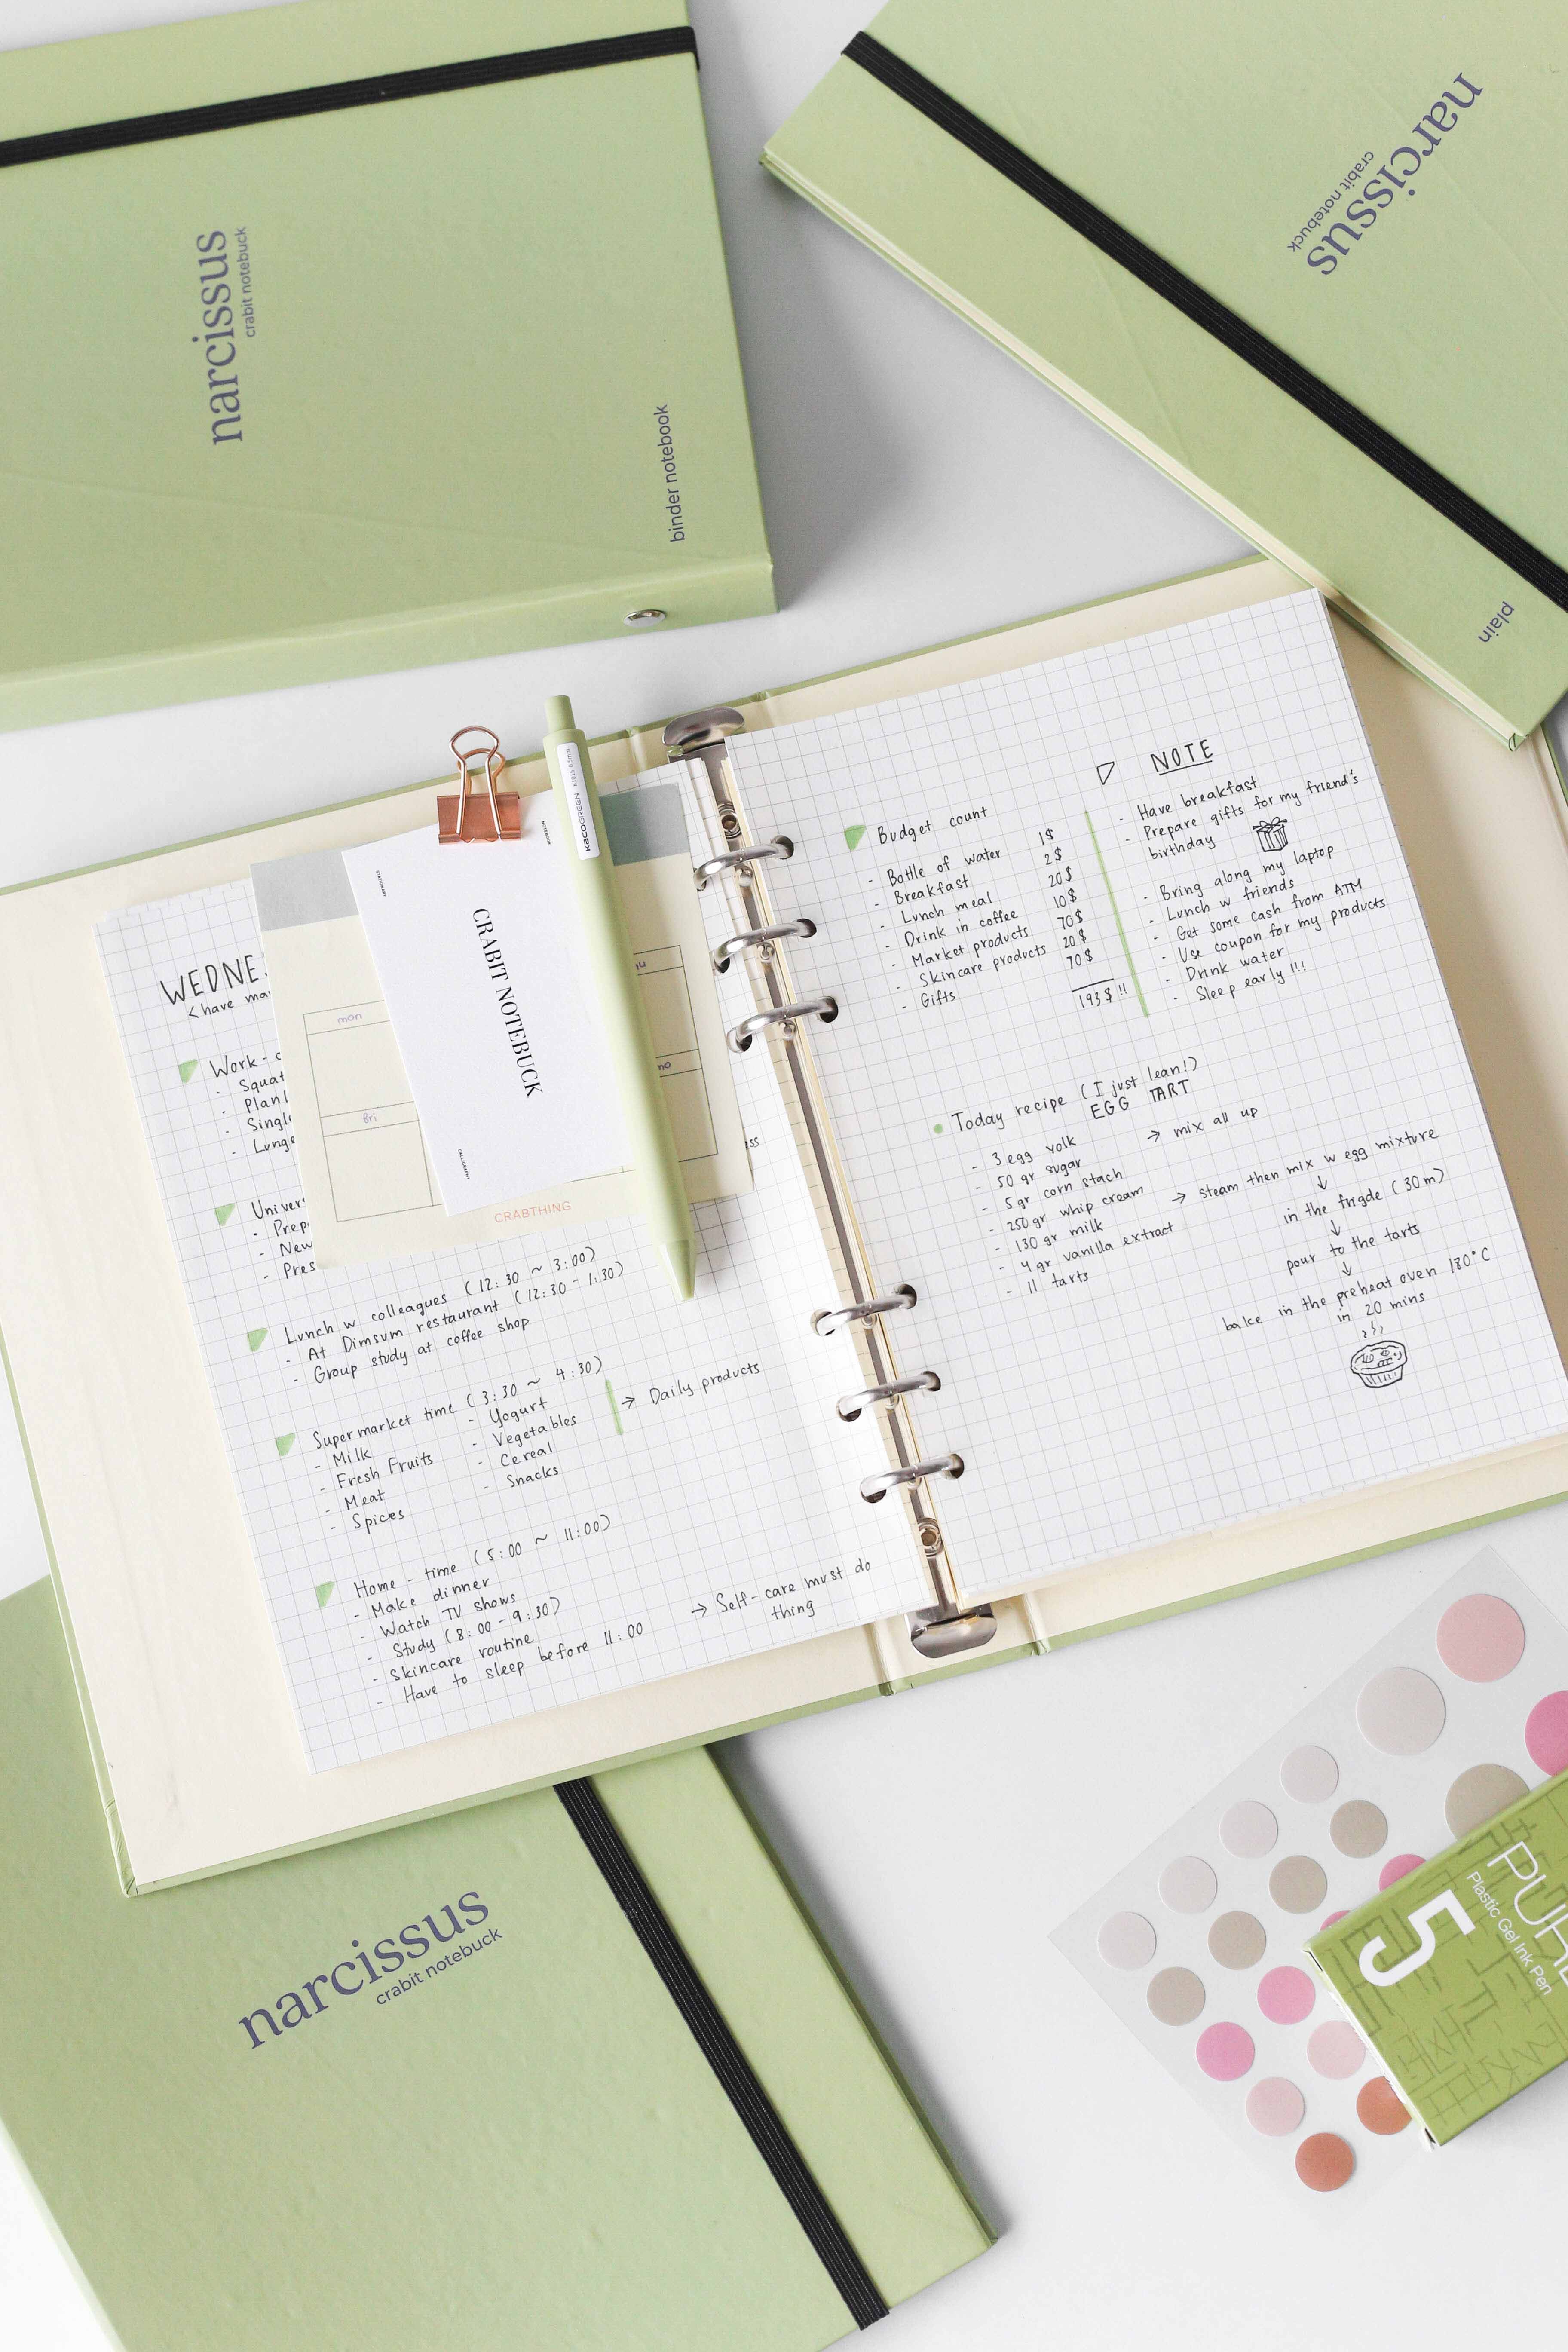 narcissus
crabit notebuck
binder notebook
narcissus
crabit notebuck
plain
KACOGREEN
CRABIT NOTEBUCK
STATIONARY
NOTEBUCK
CALLIGRAPHY
mon
fri
CRABTHING
WEDNES
<have ma
Work-o
- Squat
- Plank
- Single
- Lunge
Univer
- Prep
- New
- Pres
Lunch w colleagues (12:30 ~ 3:00)
- At Dimsum restaurant (12:30 - 1:30)
- Group study at coffee shop
Supermarket time (3:30 ~ 4:30)
- Milk
- Fresh Fruits
- Meat
- Spices
- Yogurt
- Vegetables
- Cereal
- Snacks
→ Daily products
Home - time (5:00 ~ 11:00)
- Make dinner
- Watch TV shows
- Study (8:00 - 9:30)
- Skincare routine
- Have to sleep before 11:00
→ Self-care must do
thing
Budget count
- Bottle of water 1$
- Breakfast 2$
- Lunch meal 20$
- Drink in coffee 10$
- Market products 70$
- Skincare products 20$
- Gifts 70$
193$ !!
NOTE
- Have breakfast
- Prepare gifts for my friend's
birthday
- Bring along my laptop
- Lunch w friends
- Get some cash from ATM
- Use coupon for my products
- Drink water
- Sleep early !!!
Today recipe (I just lean!)
EGG TART
- 3 egg yolk
- 50 gr sugar
- 5 gr corn stach
- 250 gr whip cream
- 130 gr milk
- 4 gr vanilla extract
- 11 tarts
→ mix all up
→ steam then mix w egg mixture
↓
in the frigde (30m)
↓
pour to the tarts
↓
bake in the preheat oven 180°C
in 20 mins
narcissus
crabit notebuck
5
Plastic Gel Ink Pen